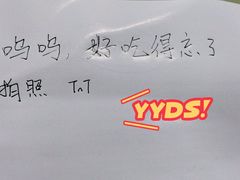 呜呜，好吃得忘了
拍照 TnT
YYDS!